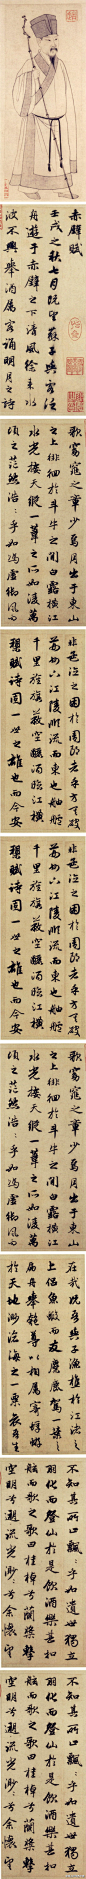 赤壁賦
壬戌之秋七月既望蘇子與客泛
舟遊于赤壁之下清風徐來水
波不興舉酒屬客誦明月之詩
歌窈窕之章少焉月出於東山
之上徘徊於斗牛之間白露橫江
水光接天縱一葦之所如凌萬
頃之茫然浩浩乎如馮虛御風而
非孟德之困於周郎者乎方其破
荊州下江陵順流而東也舳艫
千里旌旗蔽空釃酒臨江橫
槊賦詩固一世之雄也而今安
非孟德之困於周郎者乎方其破
荊州下江陵順流而東也舳艫
千里旌旗蔽空釃酒臨江橫
槊賦詩固一世之雄也而今安
歌窈窕之章少焉月出於東山
之上徘徊於斗牛之間白露橫江
水光接天縱一葦之所如凌萬
頃之茫然浩浩乎如馮虛御風而
在哉況吾與子漁樵於江渚之
上侶魚蝦而友麋鹿駕一葉之
扁舟舉匏尊以相屬寄蜉蝣
於天地渺滄海之一粟哀吾生
不知其所止飄飄乎如遺世獨立
羽化而登仙於是飲酒樂甚扣
舷而歌之歌曰桂棹兮蘭槳擊
空明兮溯流光渺渺兮余懷望
不知其所止飄飄乎如遺世獨立
羽化而登仙於是飲酒樂甚扣
舷而歌之歌曰桂棹兮蘭槳擊
空明兮溯流光渺渺兮余懷望